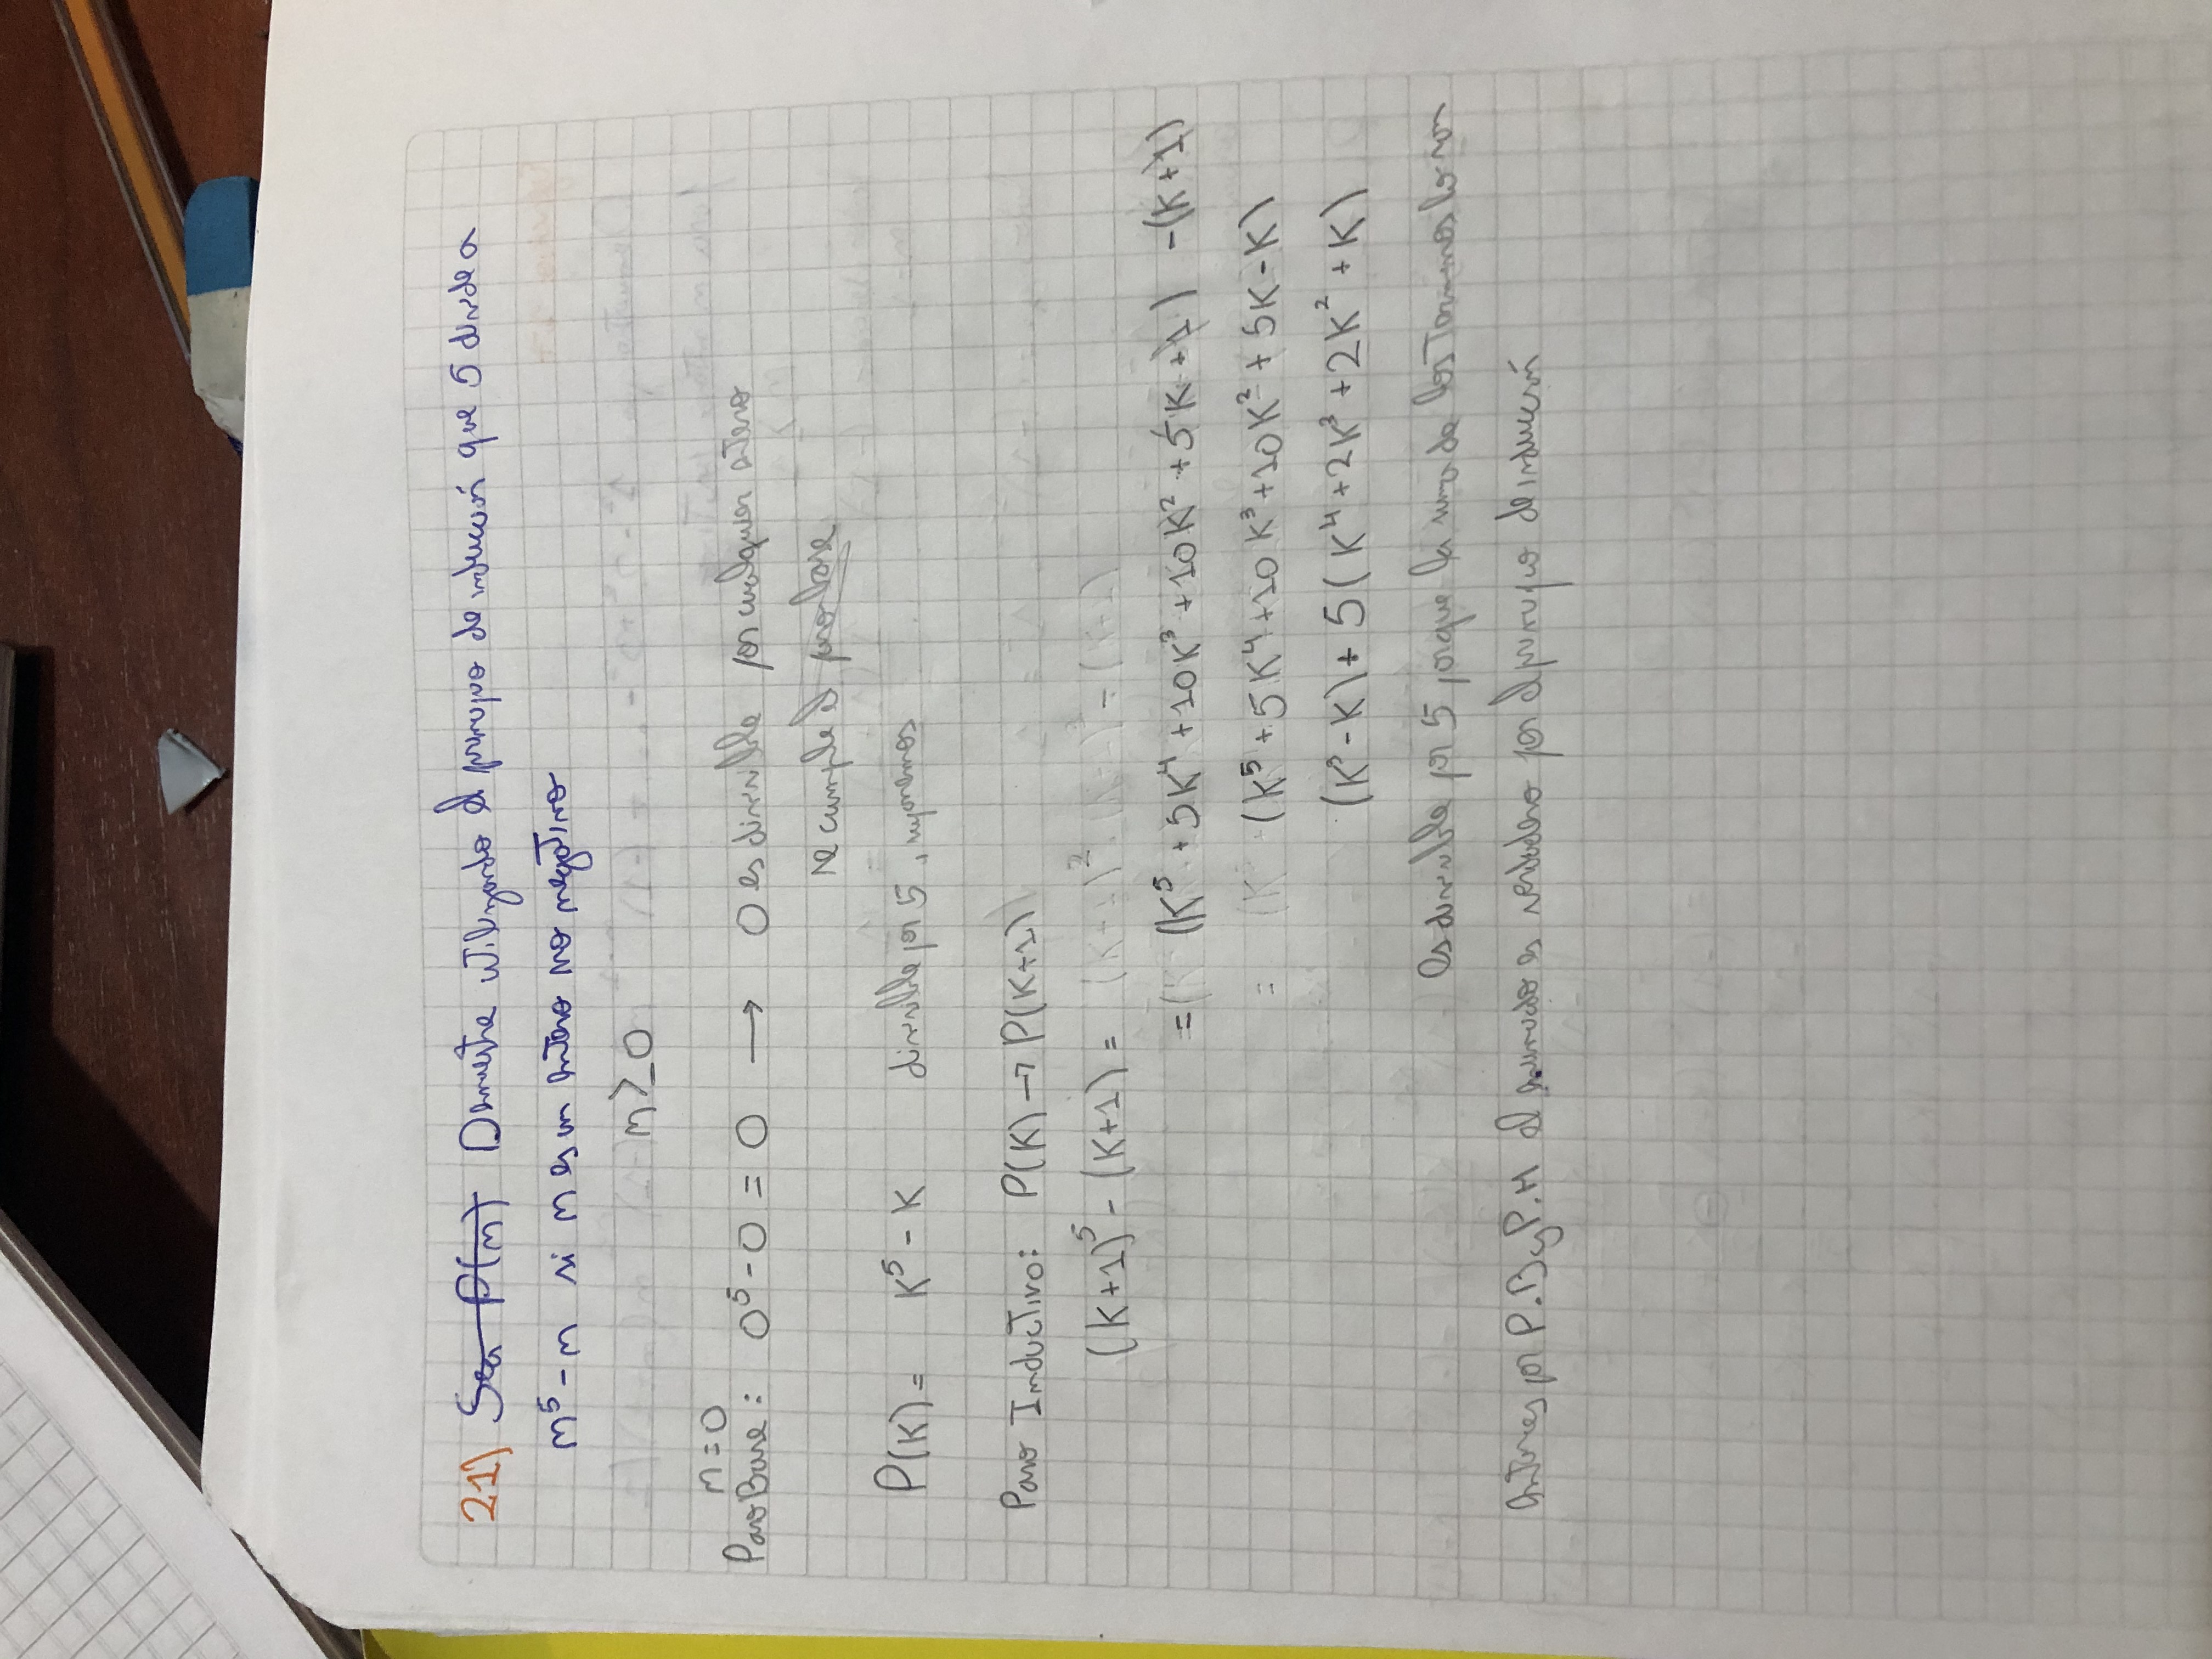 21) Sea P(n) Demuestre utilizando el principio de inducción que 5 divide a
n⁵-n si n es un entero no negativo
n≥0
n=0
Paso Base: 0⁵-0 = 0 → 0 es divisible por cualquier entero
se cumple el paso base
P(K)= K⁵-K divisible por 5, suponemos
Paso Inductivo: P(K)→P(K+1)
(K+1)⁵-(K+1) =
= (K⁵+5K⁴+10K³+10K²+5K+1) -(K+1)
= (K⁵+5K⁴+10K³+10K²+5K-K)
(K⁵-K)+5(K⁴+2K³+2K²+K)
Es divisible por 5, porque la suma de los terminos lo son
Entonces por P.B y P.H el enunciado es verdadero por el principio de inducción